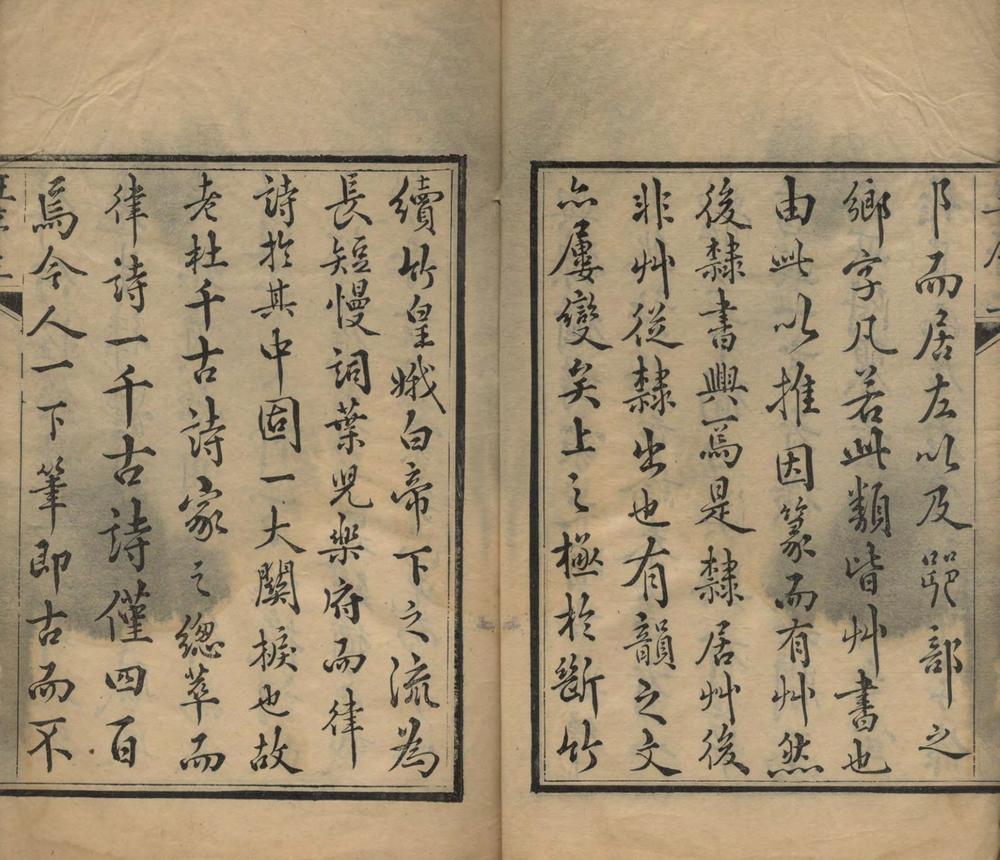 卩而居左以及 部之
鄉字凡若此類皆艸書也
由此以推因篆而有艸然
後隸書興焉是隸居艸後
非艸從隸出也有韻之文
亦屢變矣上之極於斷竹
續竹皇娥白帝下之流為
長短慢詞葉兒樂府而律
詩於其中固一大關捩也故
老杜千古詩家之總萃而
律詩一千古詩僅四百
焉今人一下筆即古而不